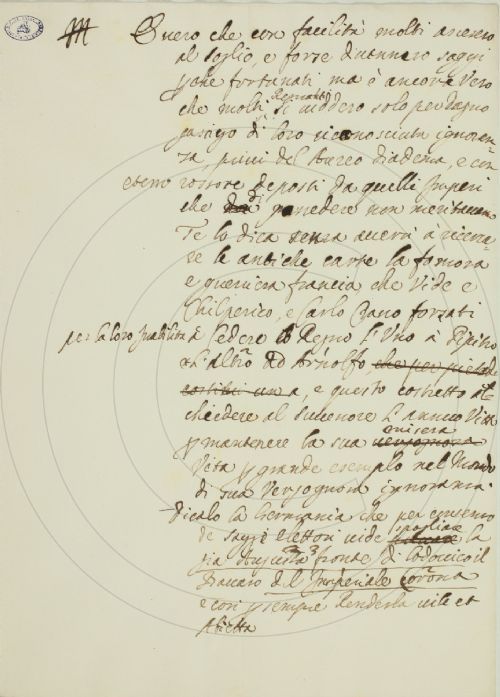 È vero che con facilità molti ascesero
al soglio, e forse divennero saggi
perche fortunati ma è ancora vero
che molti Regnanti si viddero solo per degno
gastigo di loro riconosciuta ignoran=
za, privi del Aureo diadema, e con
eterno rossore deposti da quelli Imperi
che possedere non meritavan
Te lo dica senza avervi à ricerca=
re le antiche carte la famosa
e guerriera francia che vide e
Chilperico, e Carlo Crasso forzati
per la loro inabilità à cedere il Regno l'uno à Pipino
e l'altro ad Arnolfo, che per pietade
, e questo costretto à
chiedere al successore l'annuo Vitto
per mantenere la sua misera
vita per grande esempio nel Mondo
di sua vergognosa ignoranza.
Dicalo la Germania che per consenso
de saggi elettori vide spogliare la
già Augusta fronte di Lodovico il
Bavaro del Imperiale corona
e così per sempre renderla vile et
abietta